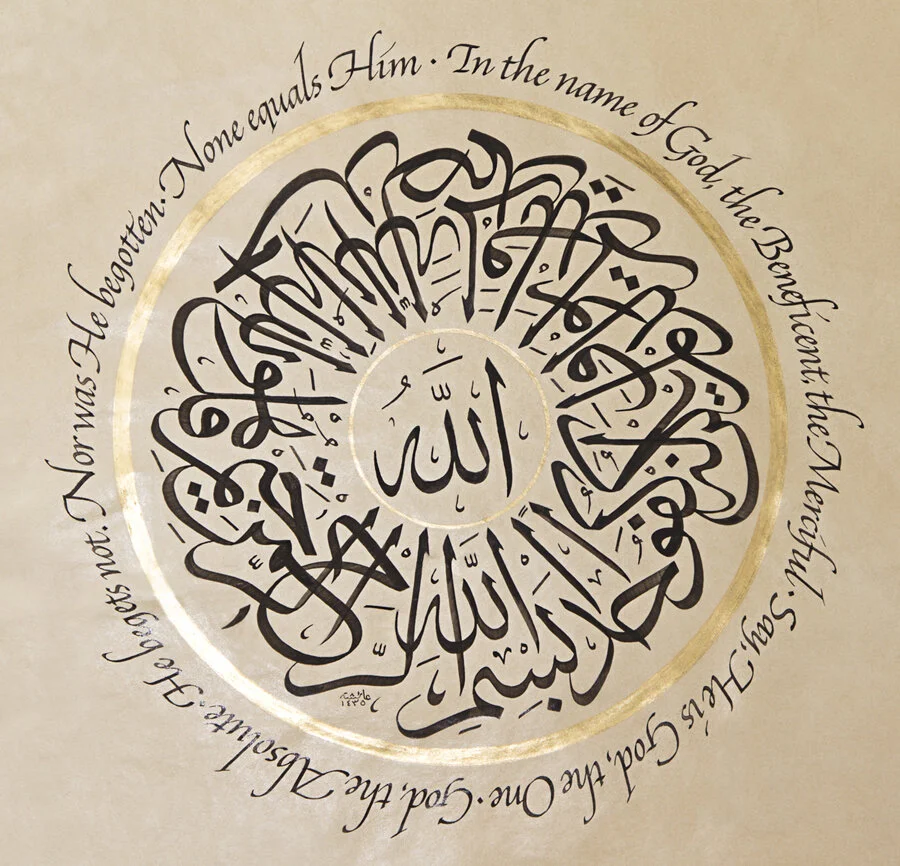 In the name of God, the Beneficent, the Merciful · Say, He is God, the One · God, the Absolute · He begets not. Nor was He begotten. None equals Him ·
بسم الله الرحمن الرحيم قل هو الله أحد الله الصمد لم يلد ولم يولد ولم يكن له كفوا أحد
الله
١٤٣٥